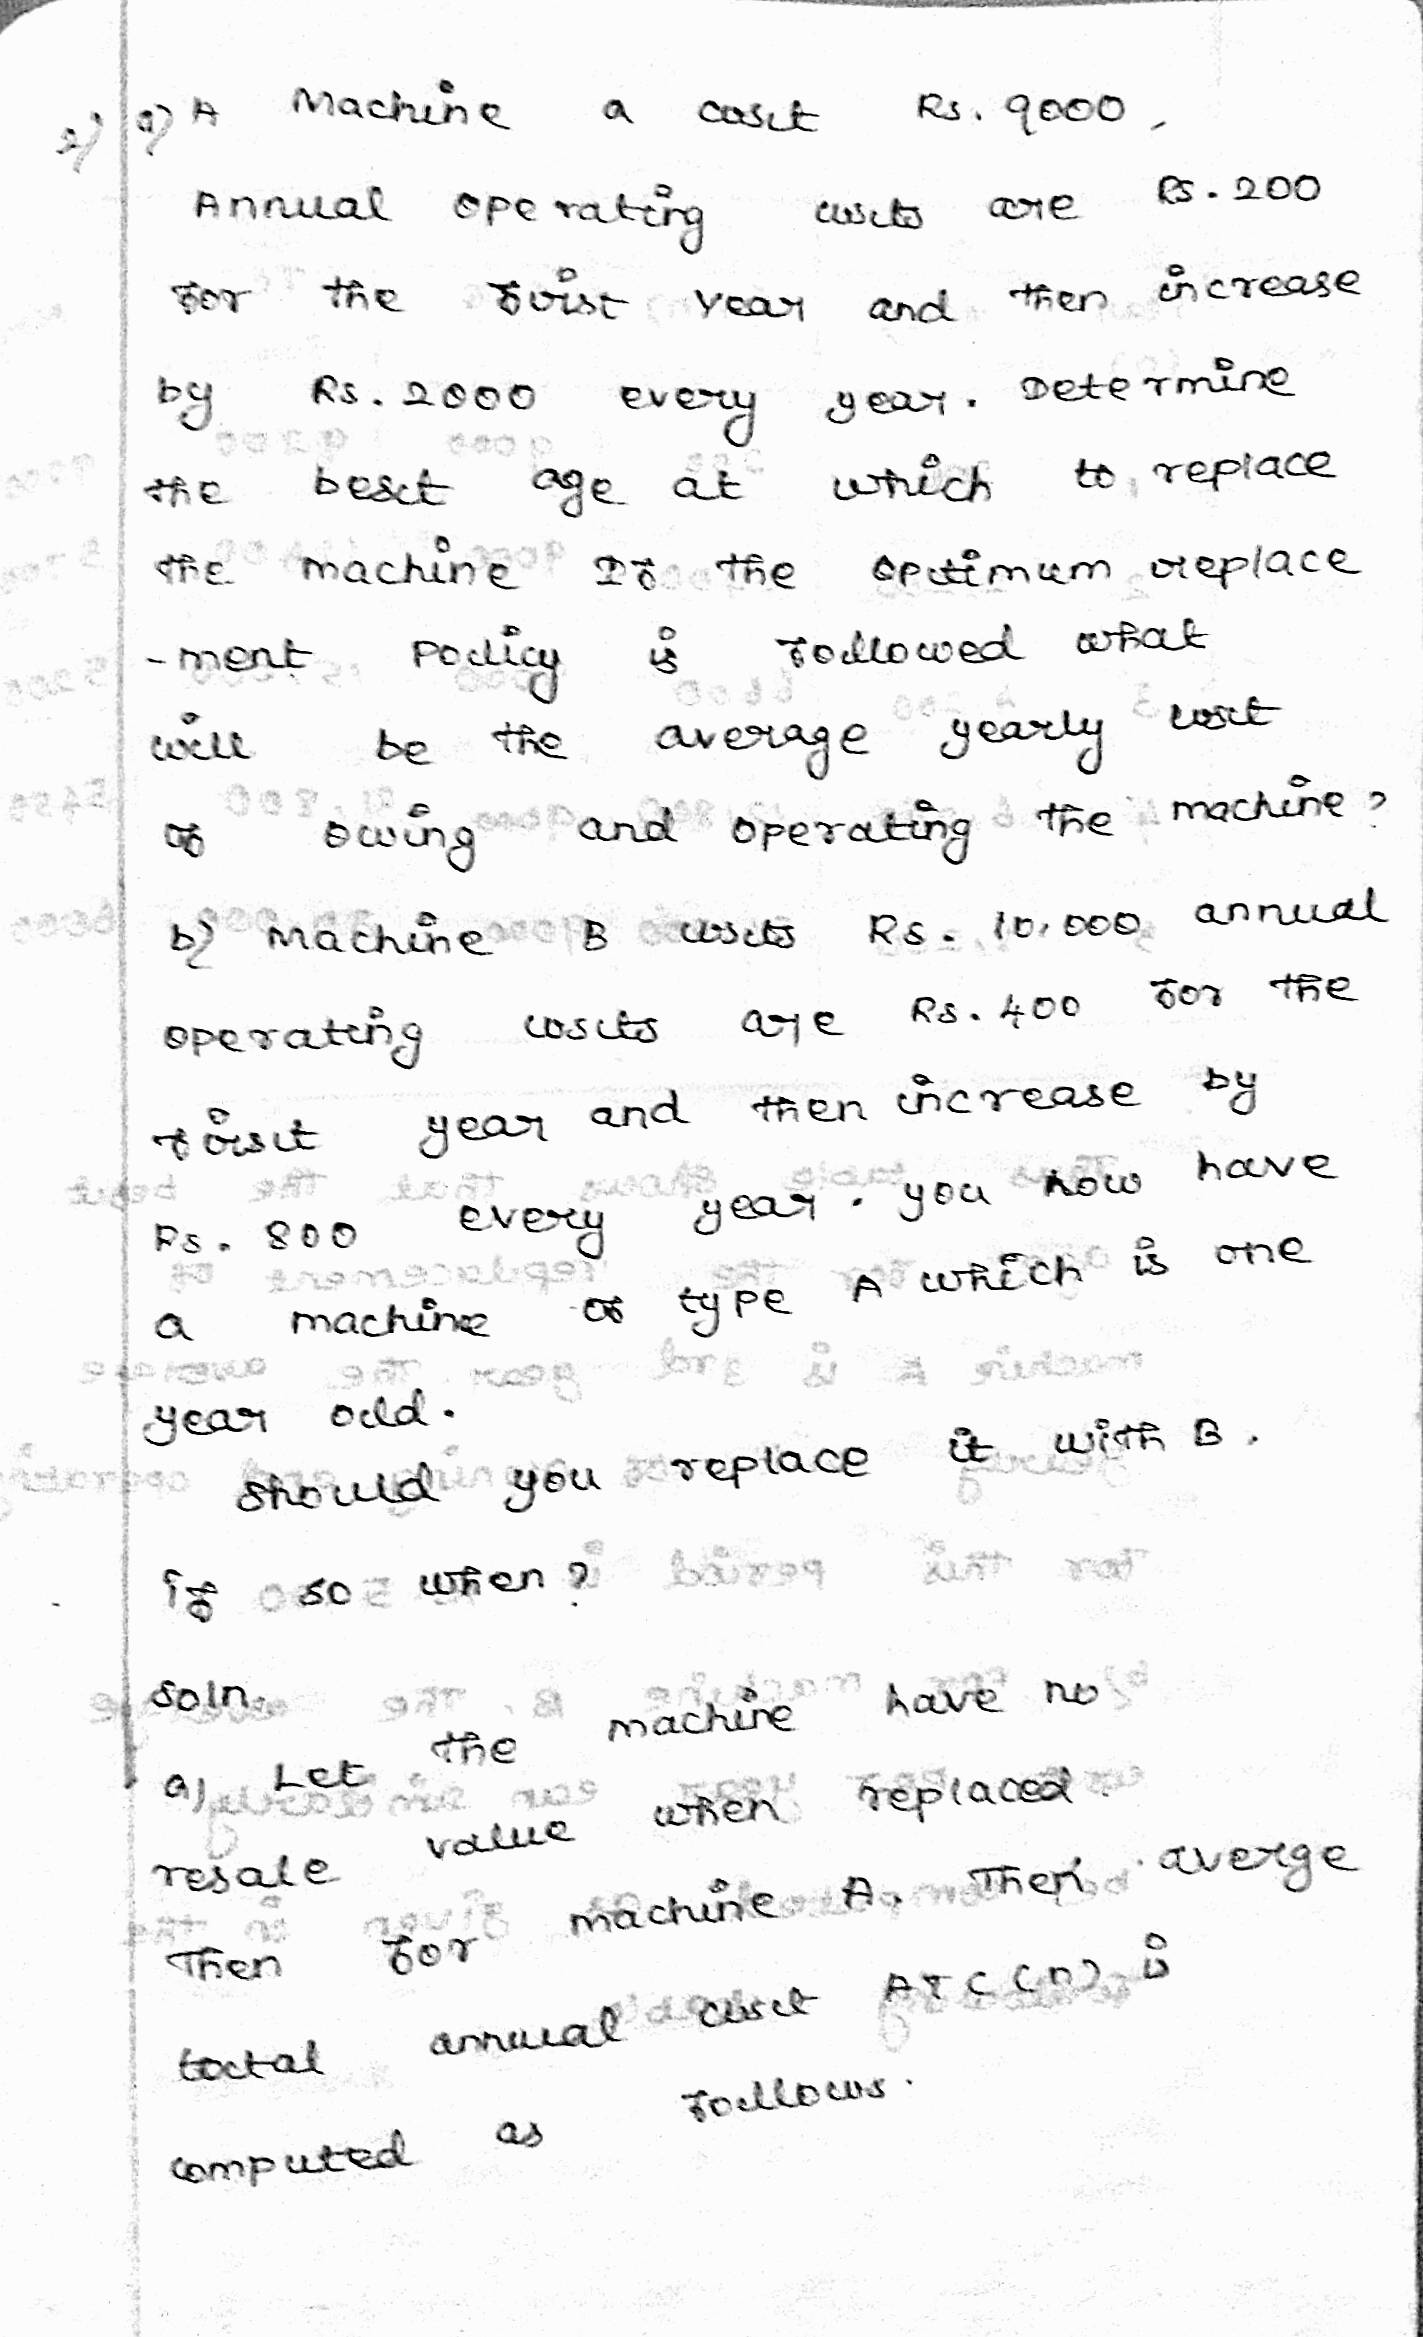 2) a) A Machine a cost Rs. 9000,
Annual operating costs are Rs. 200
for the first year and then increase
by Rs. 2000 every year. Determine
the best age at which to replace
the machine If the optimum replace
-ment policy is followed what
will be the average yearly cost
of owing and operating the machine?
b) Machine B costs Rs. 10,000 annual
operating costs are Rs. 400 for the
first year and then increase by
Rs. 800 every year. you now have
a machine of type A which is one
year old.
should you replace it with B.
if so when?
soln.
a) Let the machine have no
resale value when replaced.
Then for machine A. Then averge
total annual cost ATC (n) is
computed as follows.